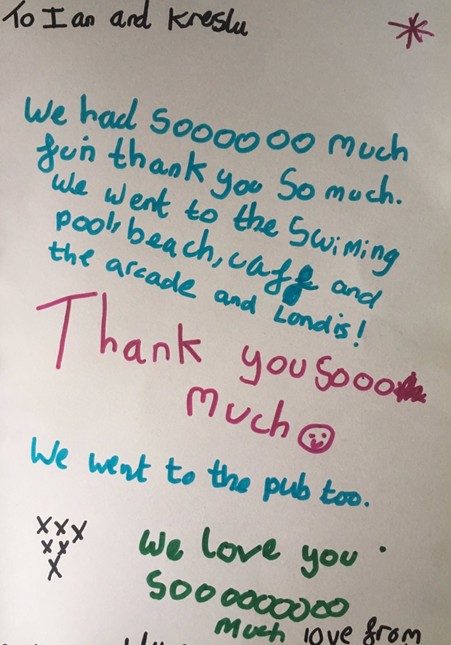 To Ian and Kreslu
We had Soooooo much
fun thank you So much.
We went to the Swiming
pool, beach, caff and
the arcade and Londis!
Thank you Sooo
Much
We went to the pub too.
xxx
xx
x
We love you
Sooooooooo
Much love from